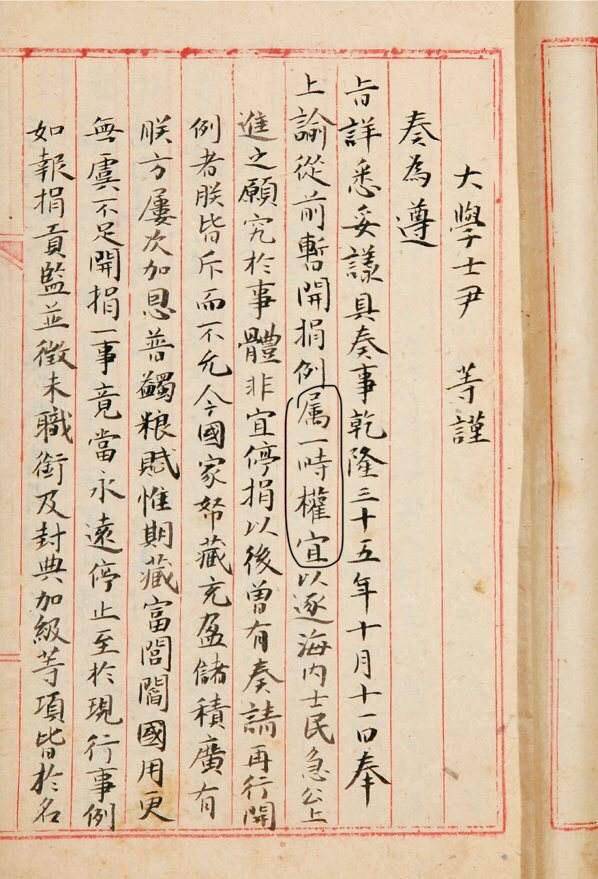 大學士尹　等謹
奏為遵
旨詳悉妥議具奏事乾隆三十五年十月十一日奉
上諭從前暫開捐例属一時權宜以逐海內士民急公上
進之願究於事體非宜停捐以後曾有奏請再行開
例者朕皆斥而不允今國家帑藏充盈儲積廣有
朕方屢次加恩普蠲粮賦惟期藏富閭閻國用更
無虞不足開捐一事竟當永遠停止至於現行事例
如報捐貢監並微末職銜及封典加級等項皆於名